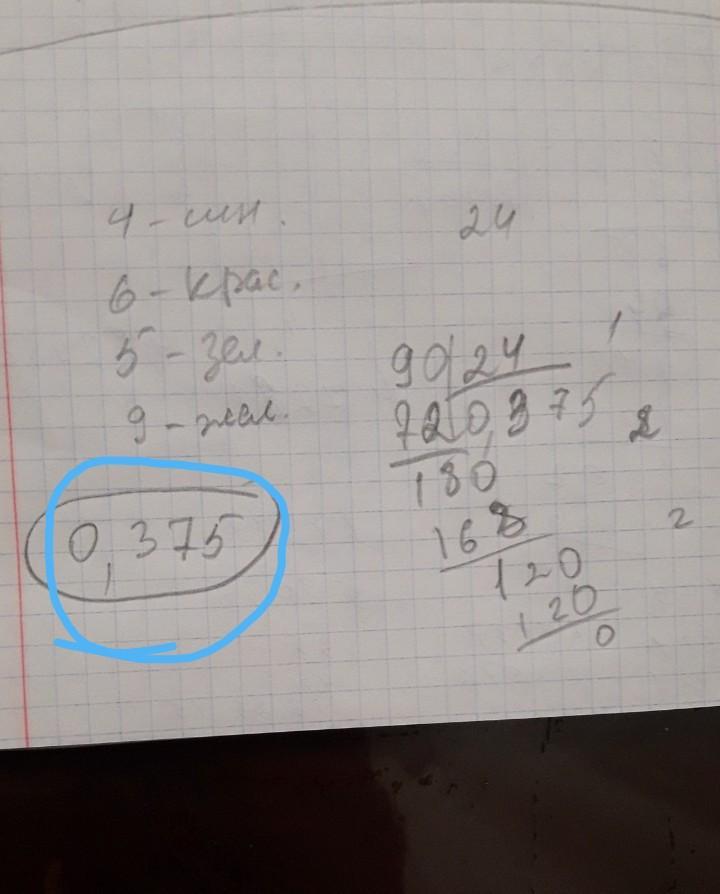 4 - син.
24
6 - крас.
5 - зел.
9 - жел.
90 24
72 0,375
180
168
120
120
0
0,375
1
2
2